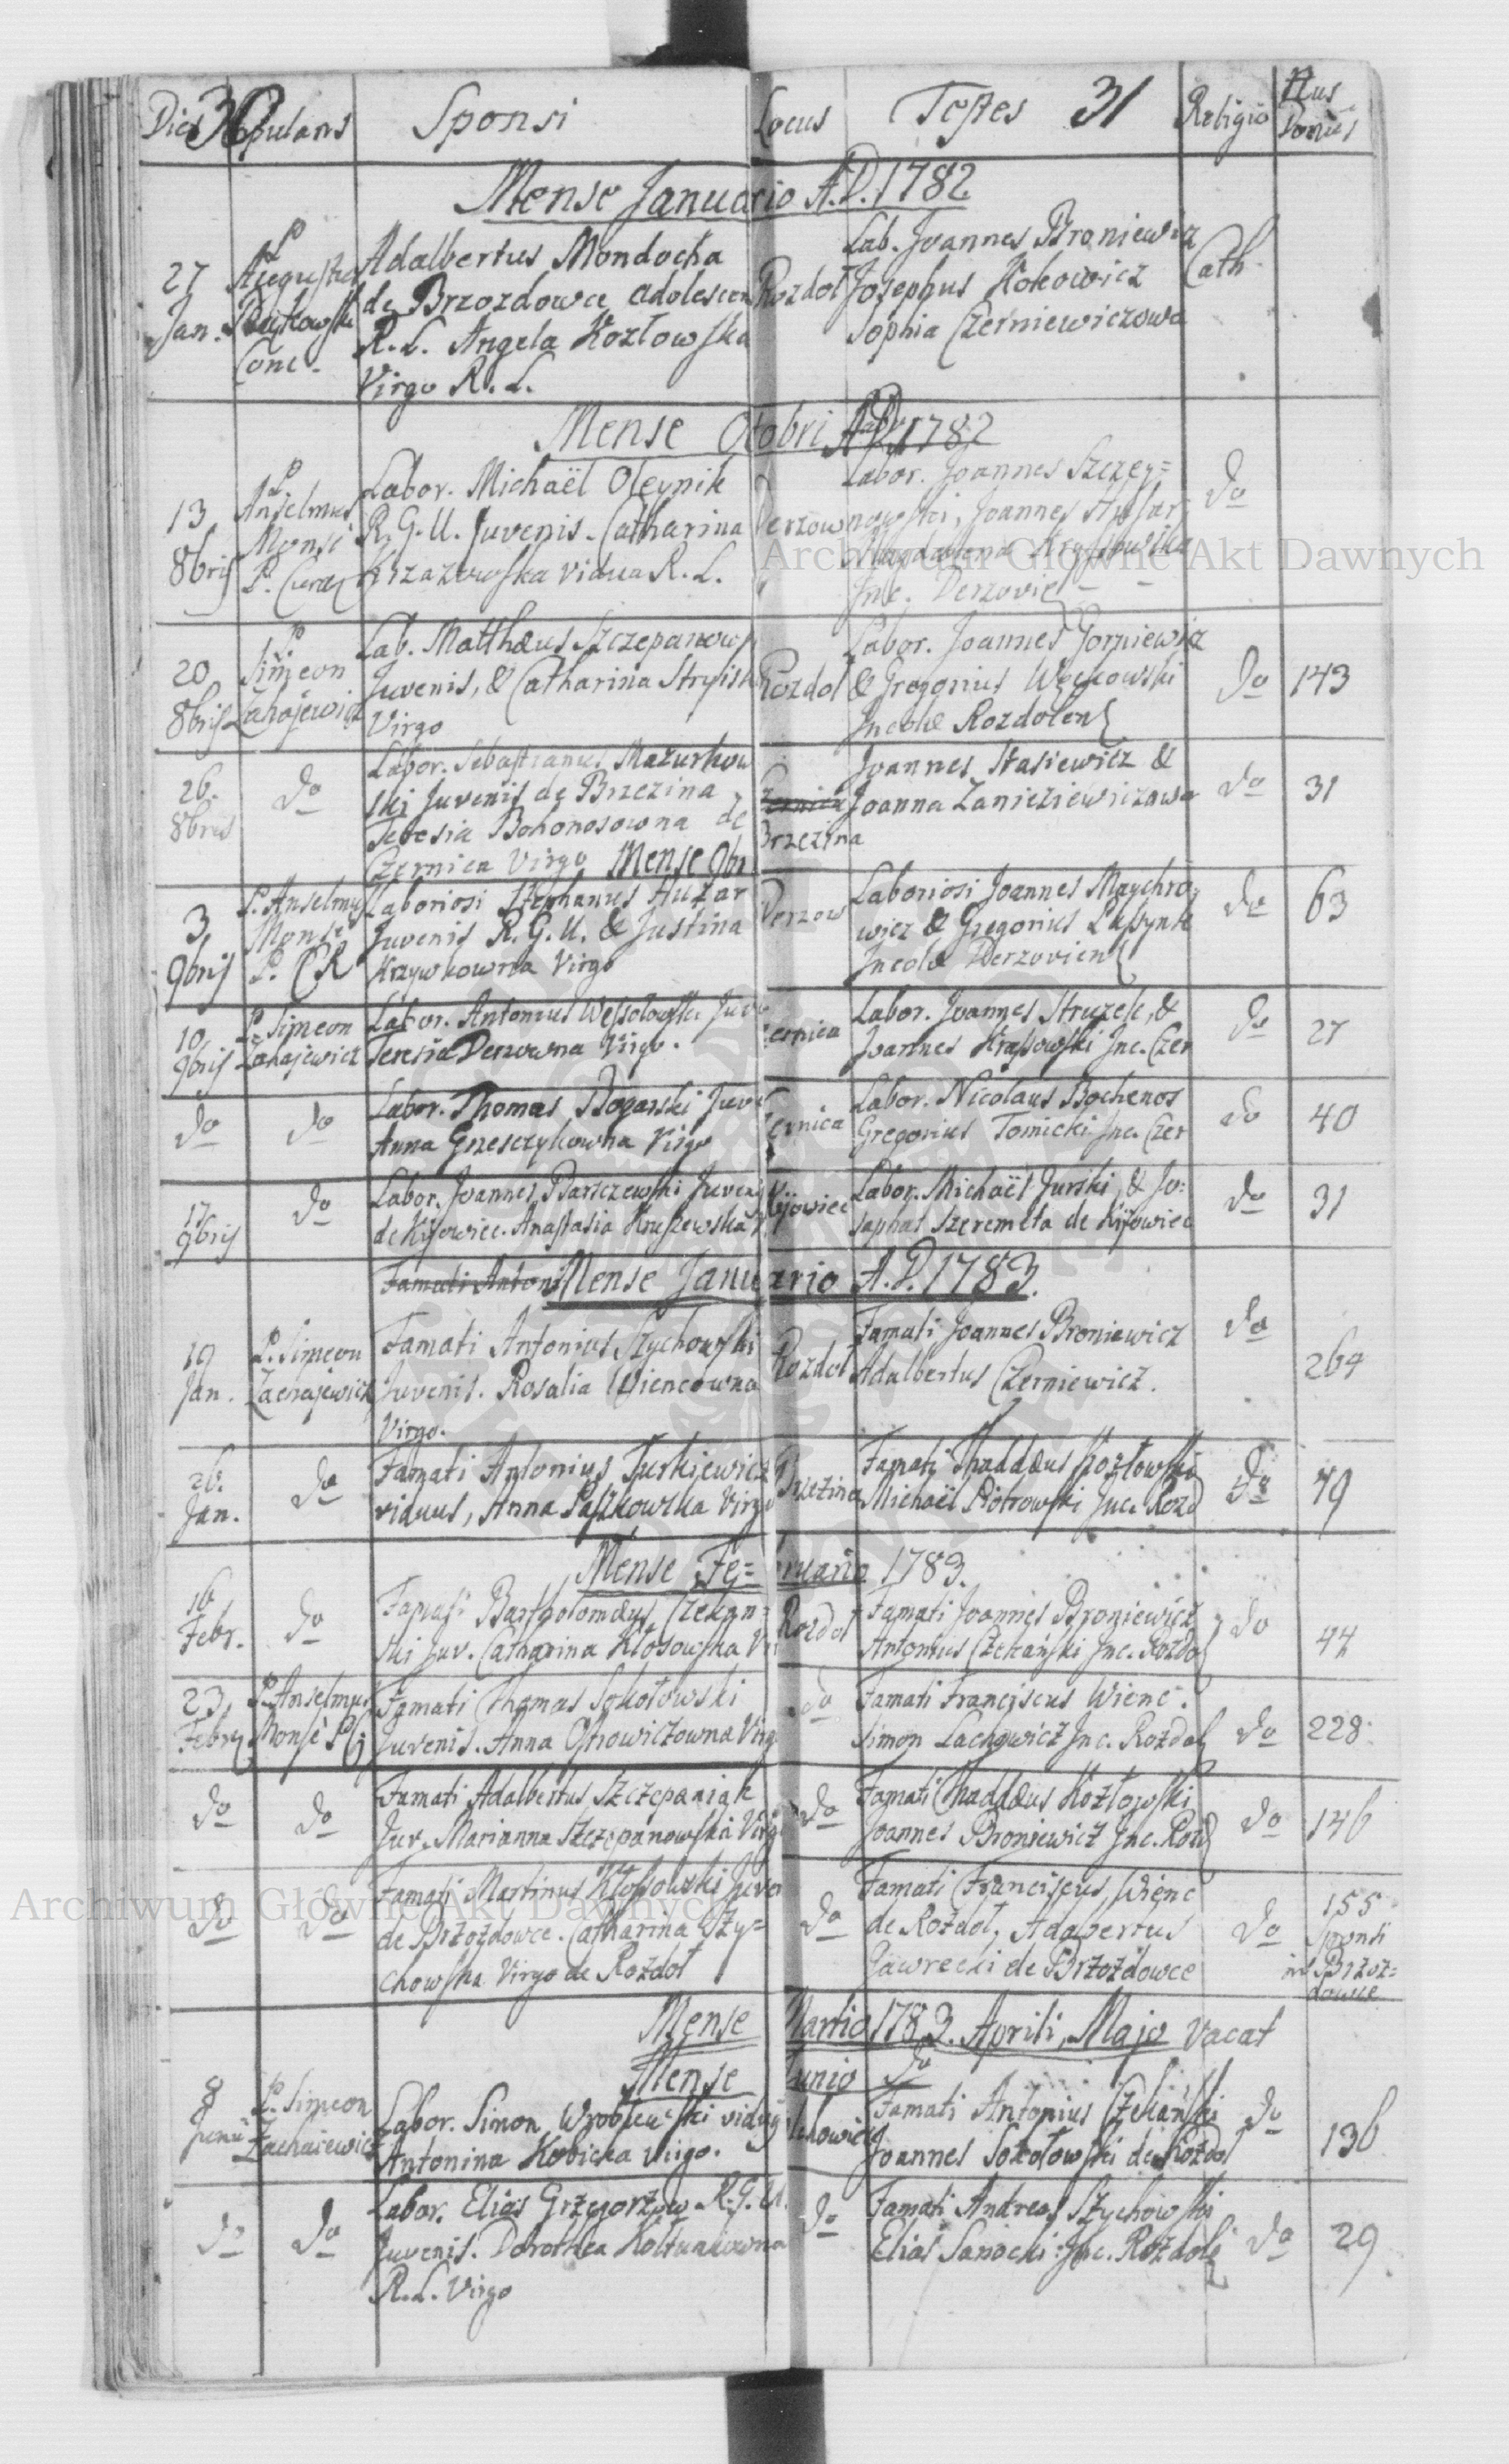 Dies Copulans Sponsi Locus Testes 31 Religio Nus Domus
30
Mense Januario A.D. 1782
27 Jan.
P. Augustus
Conc.
Adalbertus Mondocha
de Brzozdowce adolescen
R. L. Angela Kozłowska
Virgo R. L.
Rozdoł
Lab. Joannes Broniewicz
Josephus Kokowicz
Sophia Czerniewiczowa
Cath.
Mense Otobri A.D. 1782
13 8bris
P. Anselmus
Monsé
P. Curat
Labor. Michaël Oleynik
R. G. U. Juvenis. Catharina
vidua R. L.
Derzow
Labor. Joannes Szczey=
nowski, Joannes
Magdalena
Inc. Derzovie
do
20 8bris
P. Simeon
Labor. Matthæus Szczepanows
Juvenis, & Catharina Stryisk
Virgo
Rozdol
Labor. Joannes Gorniewicz
& Gregorius
Incolæ Rozdolens
do
143
26. 8bris
do
Labor. Sebastianus Mazurkow
ski Juvenis de Brzezina
Teresia Bohonosowna de
Czernica Virgo Mense 9bri
Czernica
Brzezina
Joannes Stasiewicz &
Joanna
do
31
3 9bris
P. Anselmus
Monsé
P. CR
Laboriosi Stephanus Huzar
Juvenis R. G. U. & Justina
Krzywkowna Virgo
Derzow
Laboriosi Joannes Maychro
wicz & Gregorius
Incolæ Derzoviens
do
63
10 9bris
P. Simeon
Zahajewicz
Labor. Antonius Wessolowski Juve
Teresia Derzowna Virgo.
ernica
Labor. Joannes Struzek, &
Joannes Krassowski Inc. Czer
do
27
do
do
Labor. Thomas Bogarski Juve
Anna Grzesczykowna Virgo
ernica
Labor. Nicolaus Bochenos
Gregorius Tomicki Inc. Czer
do
40
17 9bris
do
Labor. Joannes Barsczewski Juvenis
de Kijowiec. Anastasia Kruszewska V
Kijowiec
Labor. Michaël Jurski, & Jo=
saphat Szeremeta de Kijowiec
do
31
Famati Antoni Mense Januario A.D. 1783.
19 Jan.
P. Simeon
Zachajewicz
Famati Antonius Szychowski
Juvenis. Rosalia Wiencowna
Virgo.
Rozdoł
Famati Joannes Broniewicz
Adalbertus Czerniewicz.
do
264
26. Jan.
do
Famati Antonius Turkijewicz
viduus, Anna Paszkowska Virgo
Brzezina
Famati Thaddæus Kozłowski
Michaël Piotrowski Inc. Rozd
do
79
Mense Fe=bruario 1783.
16 Febr.
do
Famati Bartholomæus Czekan=
ski Juv. Catharina Kłosowska Vir
Rozdoł
Famati Joannes Broniewicz
Antonius Czekański Inc. Rozdo
do
44
23 Febr.
P. Anselmus
Monsé
Famati Thomas Sokołowski
Juvenis. Anna Virg
do
Famati Franciscus Wienc.
Simon Lachowicz Inc. Rozdol
do
228.
do
do
Famati Adalbertus Szczepaniak
Juv. Marianna Szczepanowska Virg
do
Famati Thaddæus Kozłowski
Joannes Broniewicz Inc. Rozd
do
146
do
do
Famati Martinus Kłossowski Juven
de Brzozdowce. Catharina Szy=
chowska Virgo de Rozdoł
do
Famati Franciscus Wienc
de Rozdoł, Adabertus
Gawrecki de Brzozdowce
do
155
Sponsi
in Brzoz=
dowce
Mense Martio 1783. Aprili, Majo vacat
Mense Junio do
8 Junii
P. Simeon
Zachaiewicz
Labor. Simon Wroblewski viduus
Antonina Kobicka Virgo.
Famati Antonius Czekański
Joannes Sokołowski de Rozdoł
do
136
do
do
Labor. Elias Grzegorzow R. G. U.
Juvenis. Dorothea Kołtuniowna
R. L. Virgo
do
Famati Andreas Szychowski
Elias Sanocki Inc. Rozdoł
do
29
Archiwum Główne Akt Dawnych
Archiwum Główne Akt Dawnych